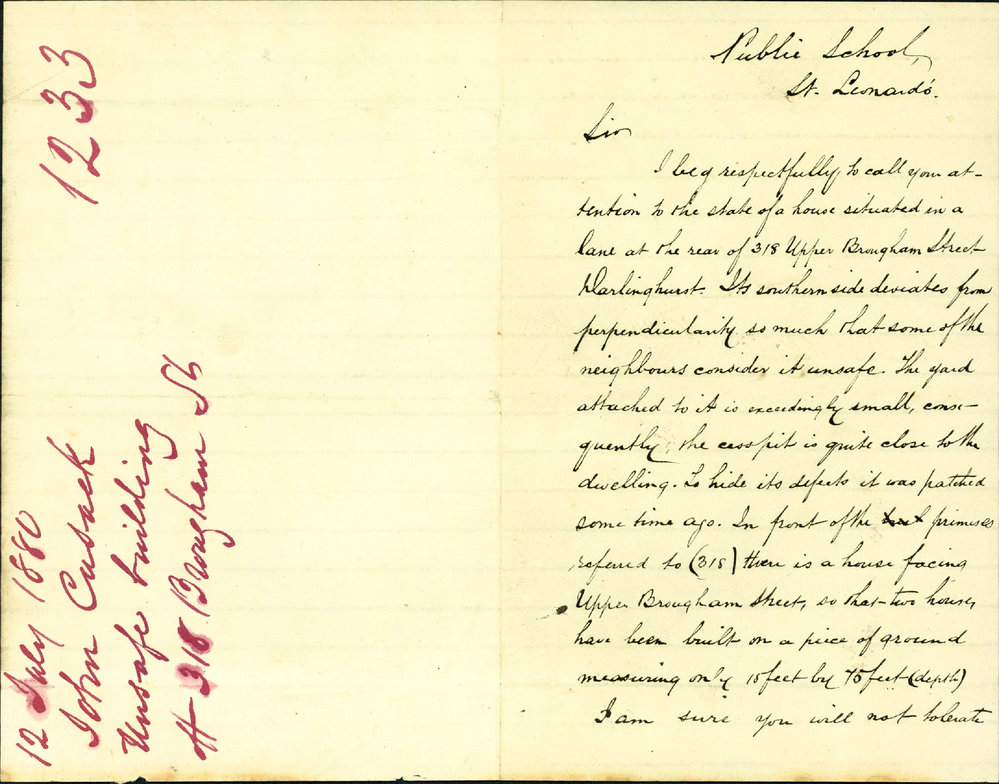 1233
12 July 1880
John Cusack
Unsafe building
at 318 Brougham St
Public School,
St. Leonard's.
Sir
I beg respectfully, to call your at-
tention to the state of a house situated in a
lane at the rear of 318 Upper Brougham Street
Darlinghurst. Its southern side deviates from
perpendicularity so much that some of the
neighbours consider it unsafe. The yard
attached to it is exceedingly small, conse-
quently, the cesspit is quite close to the
dwelling. To hide its defects it was patched
some time ago. In front of the premises
referred to (318) there is a house facing
Upper Brougham Street, so that two houses
have been built on a piece of ground
measuring only 15 feet by 75 feet (depth)
I am sure you will not tolerate